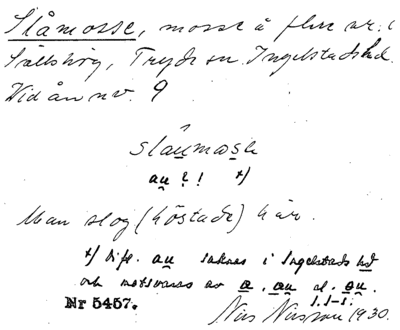 Slåmosse, mosse å flere nr. i
Sällshög, Tryde sn. Ingelstads hd.
Vid ån nv. 9
slåumosse
au ? ! x)
Man slog (höstade) här.
x) Dift. au saknas i Ingelstads hd
och motsvaras av a, au el. ou.
Nr 5457.
Nils Nilsson 1930.